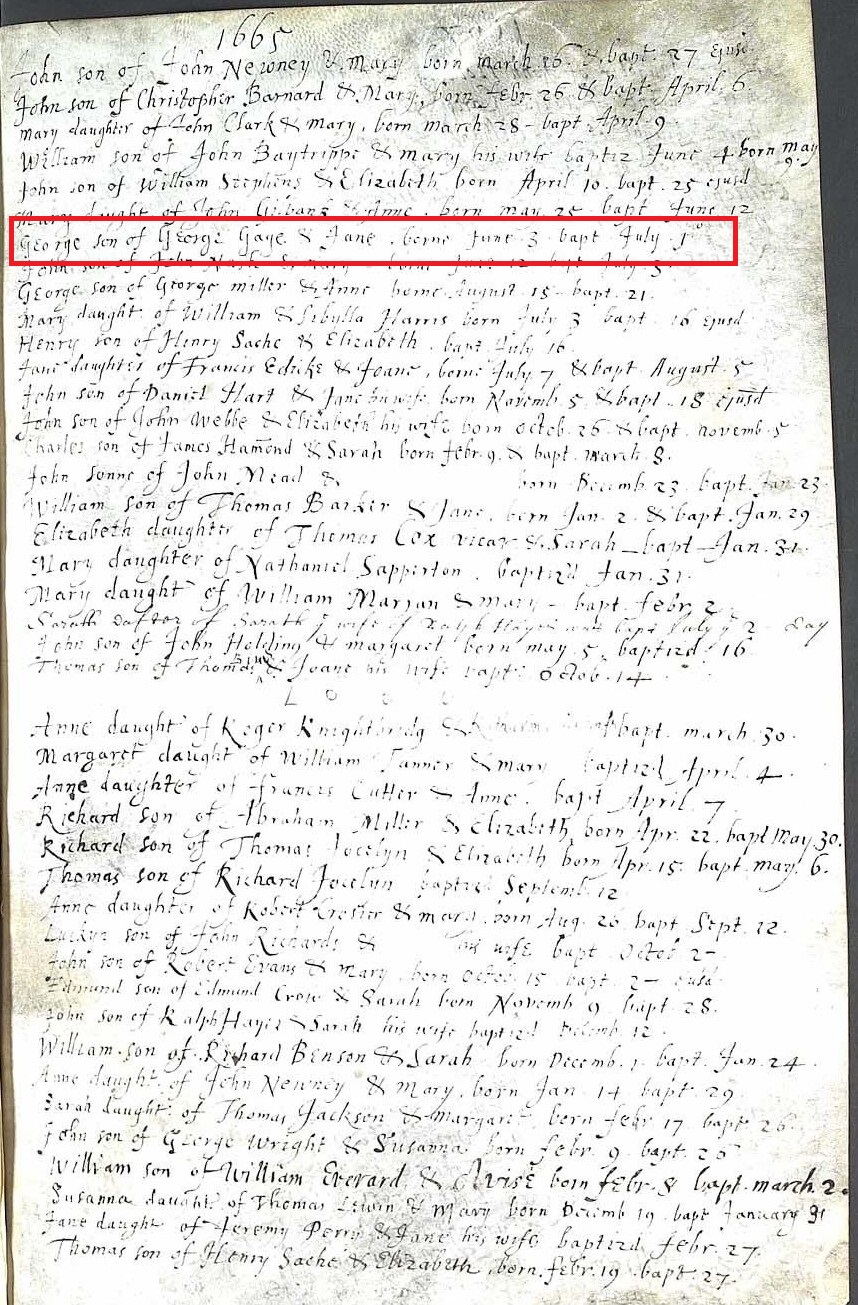 1665
John son of John Newney & Mary born march 26 & bapt. 27 ejusd
John son of Christopher Barnard & Mary, born febr. 26 & bapt. April. 6
mary daughter of John Clark & mary, born march 28 - bapt. April. 9.
William son of John Baytrippe & mary his wife baptiz June 4. born may 9.
John son of William Stephens & Elizabeth born April 10. bapt. 25 ejusd
Mary daught of John & Anne. born may 25 bapt June 12
George son of George Gage & Jane. borne June 3. bapt July. 1o
John son of John bapt July 5
George son of George miller & Anne borne August. 15 - bapt. 21.
Mary daught of William & Sibylla Harris born July 3 bapt. 16 ejusd
Henry son of Henry Sache & Elizabeth. bapt July 16.
Jane daughter of Francis Edrike & Joane, borne July 7 & bapt August. 5
John son of Daniel Hart & Jane his wife born Novemb. 5 & bapt. 18 ejusd
John son of John Webbe & Elizabeth his wife born octob. 26. & bapt. novemb. 5
Charles son of James Hamond & Sarah born febr. 9. & bapt. march. 8.
John sonne of John Mead & born Decemb. 23. bapt. Jan. 23
William son of Thomas Barker & Jane, born Jan. 2. & bapt. Jan. 29
Elizabeth daughter of Thomas Cox vicar & Sarah - bapt - Jan. 31.
Mary daughter of Nathaniel Sapperton. baptizd Jan. 31.
Mary daught of William Marjan & mary - bapt. febr. 2.
Sarath dafter of Sarath wife of Ralph was bapt July 2 - day
John son of John Holding & margaret born may. 5. baptizd 16
Thomas son of Thomas & Joane his wife bapt. Octob. 14.
Anne daught of Roger Knightbridg & bapt. march. 30.
Margaret daught of William Tanner & mary baptizd April. 4.
Anne daughter of Francis Cutter & Anne. bapt April. 7.
Richard son of Abraham Miller & Elizabeth, born Apr. 22. bapt May. 30.
Richard son of Thomas Jocelyn & Elizabeth born Apr. 15. bapt. may. 6.
Thomas son of Richard Jocelyn baptizd Septemb. 12
Anne daughter of Robert & mary. born Aug. 26 bapt Sept. 12.
son of John Richards & his wife bapt. Octob 2-
John son of Robert Evans & mary. born Octob. 15. bapt. 2- ejusd
Edmund son of Edmund Crow & Sarah born Novemb. 9. bapt. 28.
John son of Ralph Hayes & Sarah his wife baptizd Decemb. 12.
William son of Richard Benson & Sarah born Decemb. 1. bapt. Jan. 24.
Anne daught. of John Newney & Mary, born Jan. 14 bapt. 29.
Sarah daught. of Thomas Jackson & Margaret. born febr. 17. bapt. 26.
John son of George Wright & Susanna born febr. 9. bapt. 26
William son of William Everard & Avise born febr. 8 bapt. march. 2.
Susanna daught of Thomas Lewin & Mary born Decemb 19. bapt January 31
Jane daught of Jeremy Perry & Jane his wife baptizd febr. 27.
Thomas son of Henry Sache & Elizabeth, born. febr. 19. bapt. 27.